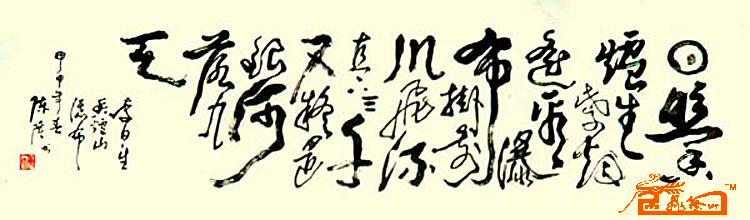 日照香
爐生
紫烟
遙看
瀑
布
掛前
川飛流
直下三千
尺疑是
銀河
落九
天
李白
望廬山
瀑布
甲申年春
陈